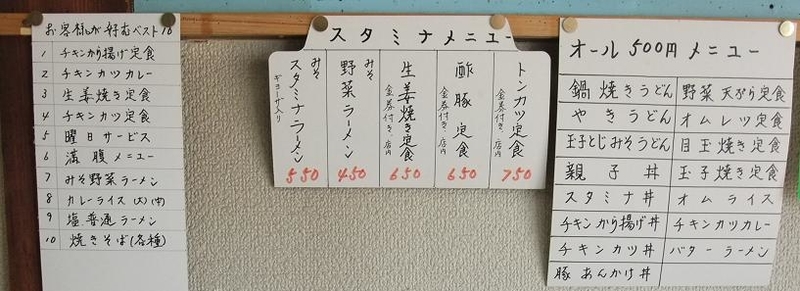 お客様が好むベスト10
1 チキンから揚げ定食
2 チキンカツカレー
3 生姜焼き定食
4 チキンカツ定食
5 曜日サービス
6 満腹メニュー
7 みそ野菜ラーメン
8 カレーライス(大)(中)
9 塩普通ラーメン
10 焼きそば(各種)
スタミナメニュー
トンカツ定食
750
酢豚定食
650
生姜焼き定食
650
みそ
野菜ラーメン
450
みそ
スタミナラーメン
ギョーザ入り
550
オール500円メニュー
鍋焼きうどん
やきうどん
玉子とじみそうどん
親子丼
スタミナ丼
チキンから揚げ丼
チキンカツ丼
豚あんかけ丼
野菜天ぷら定食
オムレツ定食
目玉焼き定食
玉子焼き定食
オムライス
チキンカツカレー
バターラーメン